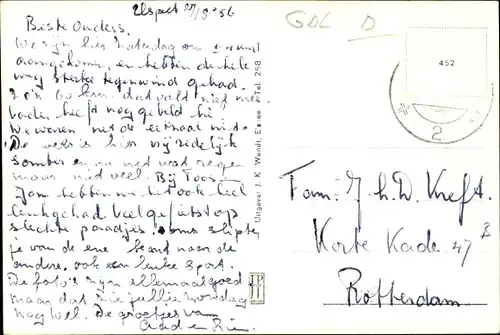 Elspeet 27/8 '56
Beste Ouders.
We zijn hier Zaterdag om
aangekomen, en hebben de hele
weg sterke tegenwind gehad.
60 km, dat valt niet mee.
Vader heeft nog gebeld hè
We waren net de
De weer is hier vrij redelijk
somber en nu wat regen
maar niet veel. Bij Toos +
Jan hebben we het ook heel
leuk gehad. Veel gefietst op
slechte paadjes soms slipte
je van de ene kant naar de
andere. ook een leuke sport.
De foto's zijn allemaal goed
maar dat zie jullie zondag
nog wel. De groetjes van
Aad en Rin.
Uitgave: J. K. Wendt, Elspeet Tel. 258
GDL D
452
2
Fam: J. h. D. Kreft.
Korte Kade 47 B
Rotterdam